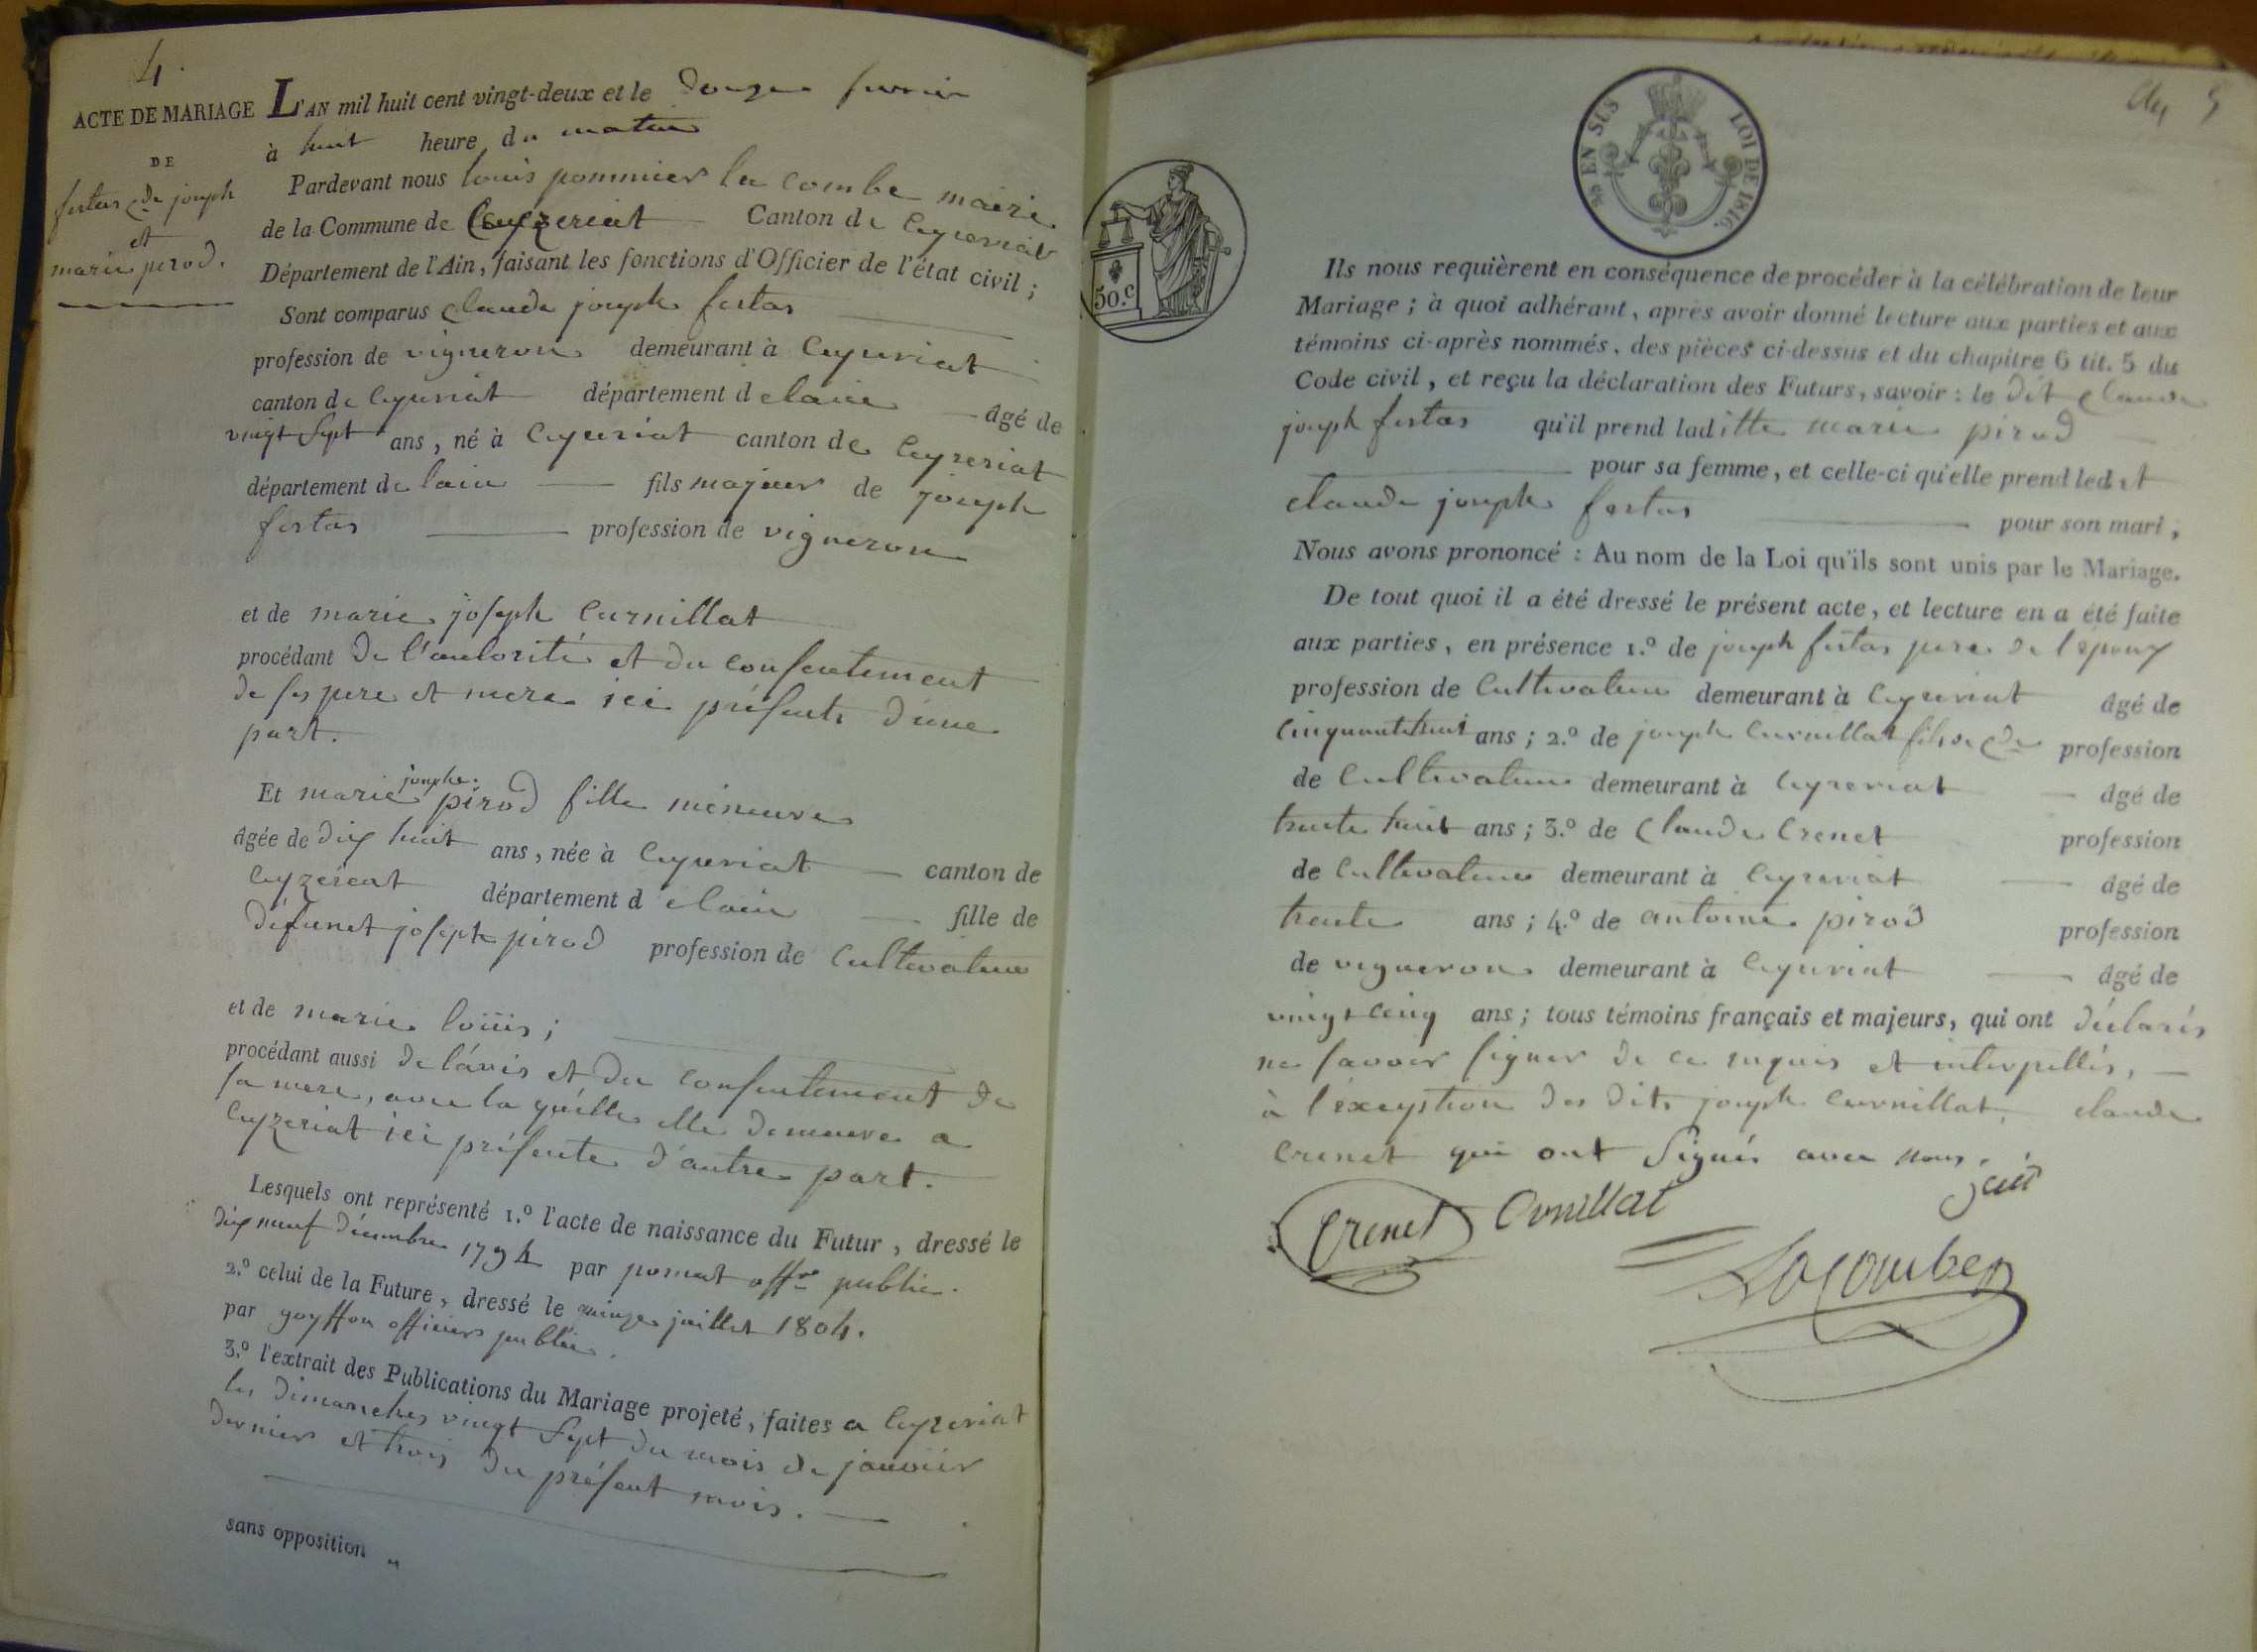 4.
ACTE DE MARIAGE
DE
festas Cde joseph
et
marie pirod.
L'AN mil huit cent vingt-deux et le douze fevrier
à huit heure du matin
Pardevant nous louis pommier la combe maire
de la Commune de Ceyzeriat Canton de Ceyzeriat
Département de l'Ain, faisant les fonctions d'Officier de l'état civil ;
Sont comparus Claude joseph festas
profession de vigneron demeurant à Ceyzeriat
canton de Ceyzeriat département de lain âgé de
vingt sept ans, né à Ceyzeriat canton de Ceyzeriat
département de lain fils majeur de joseph
festas profession de vigneron
et de marie joseph Curnillat
procédant de l'autorité et du consentement
de ses pere et mere ici présents d'une
part.
Et marie josephe. pirod fille mineure
âgée de dix huit ans, née à Ceyzeriat canton de
Ceyzeriat département d elain fille de
défunct joseph pirod profession de Cultivateur
et de marie loüis ;
procédant aussi de l'avis et du consentement de
sa mere, avec la quelle elle demeure a
Ceyzeriat ici présente d'autre part.
Lesquels ont représenté 1.º l'acte de naissance du Futur, dressé le
dix neuf décembre 1794 par offer public.
2.º celui de la Future, dressé le quinze juillet 1804.
par goyffon officier public.
3.º l'extrait des Publications du Mariage projeté, faites a Ceyzeriat
les dimanches vingt sept du mois de janvier
dernier et trois du présent mois.
sans opposition "
5
EN SUS LOI DE 1816.
50.c
Ils nous requièrent en conséquence de procéder à la célébration de leur
Mariage ; à quoi adhérant, après avoir donné lecture aux parties et aux
témoins ci-après nommés, des pièces ci-dessus et du chapitre 6 tit. 5 du
Code civil, et reçu la déclaration des Futurs, savoir : le dit Claude
joseph festas qu'il prend laditte marie pirod
pour sa femme, et celle-ci qu'elle prend ledit
claude joseph festas pour son mari ;
Nous avons prononcé : Au nom de la Loi qu'ils sont unis par le Mariage.
De tout quoi il a été dressé le présent acte, et lecture en a été faite
aux parties, en présence 1.º de joseph festas pere de l'epoux
profession de Cultivateur demeurant à Ceyzeriat âgé de
cinquante huit ans ; 2.º de joseph Curnillat fils de Cde profession
de Cultivateur demeurant à Ceyzeriat âgé de
trente huit ans ; 3.º de Claude Crenet profession
de Cultivateur demeurant à Ceyzeriat âgé de
trente ans ; 4.º de antoine pirod profession
de vigneron demeurant à Ceyzeriat âgé de
vingt cinq ans ; tous témoins français et majeurs, qui ont déclarés
ne savoir signer de ce requis et interpellés,
à l'exception des dits joseph Curnillat, claude
Crenet qui ont signés avec nous.
Crenet Curnillat
Lacombe